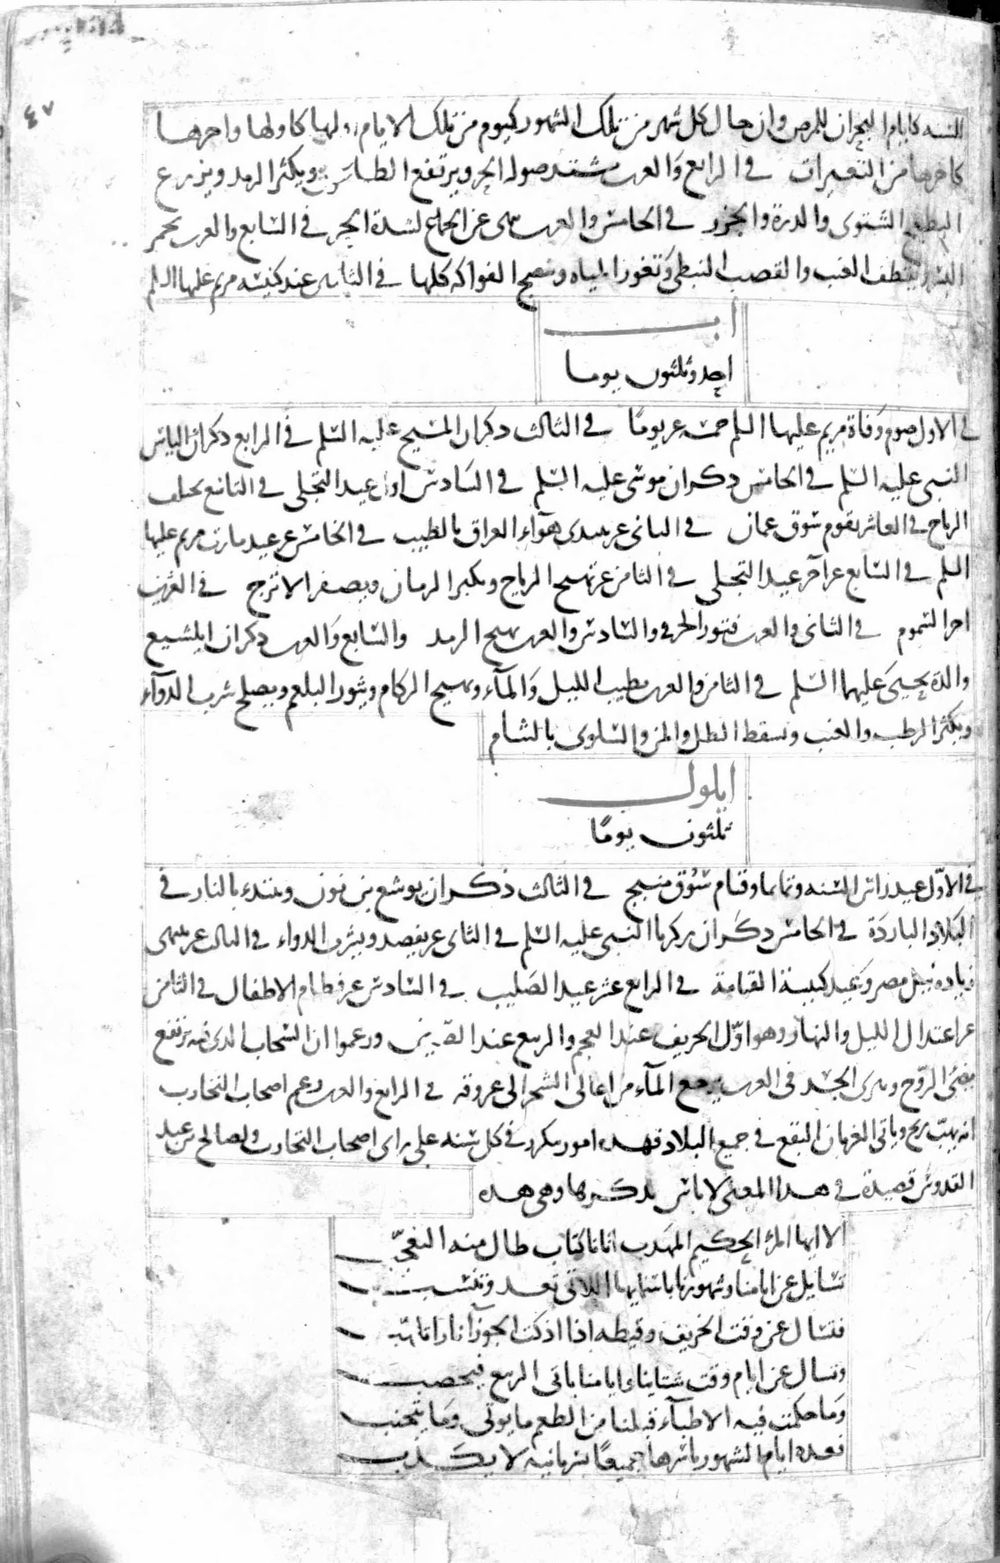 ٤٧
للسنه كايام البحران للمرض وان حال كل شهر من تلك الشهور كيوم من تلك الايام اولها كاولها واخرها
كاخرها من التغيرات في الرابع والعسرين مشتد صولة الحر ويرتفع الطاعون ويكثر الرمد ويزرع
البطيخ الشتوى والذرة والجزر في الخامس والعسرين نهى عن الجماع لشدة الحر في السابع والعسرين يحمر
البسر ويقطف العنب والقصب النبطي وتغور المياه وينضج الفواكه كلها في الثامن عند كنيسه مريم عليها السلم
آب
احد وثلثون يوما
في الاول صوم وفاة مريم عليها السلم خمسه عشر يومًا في الثالث دكران المسيح عليه السلم في الرابع دكران الياس
النبي عليه السلم في الخامس دكران موسى عليه السلم في السادس اول عيد التجلى في التاسع يختلف
الرياح في العاشر يقوم سوق عمان في الثاني عشر يبتدى هوآء العراق بالطيب في الخامس عشر عيد مارت مريم عليها
السلم في السابع عشر آخر عيد التجلى في الثامن عشر تهيج الرياح ويكبر الرمان ويصفر الاترج في العشرين
اخر السموم في الثانى والعسرين فتور الحر في والسادس والعسرين يهيج الرمد والسابع والعسرين دكران ايليشبع
والدة يحيى عليهما السلم في الثامن والعسرين يطيب الليل والمآء ويهيج الزكام ويثور البلغم ويصلح شرب الدوآء
ويكثر الرطب والعنب ويسقط الطل والمن والسلوى بالشام
ايلول
ثلثون يومًا
في الاوّل عيد راس السنه وتمامها وقيام سوق منبج في الثالث ذكران يوشع بن نون ويبتدء بالنار في
البلاد الباردة في الخامس دكران زكريا النبي عليه السلم في الثاني عشر يفصد ويشرب الدواء في الثالث عشر ينتهى
زيادة نيل مصر وعيد كنيسة القيامة في الرابع عشر عيد الصليب في السادس عشر فطام الاطفال في الثامن
عشر اعتدال الليل والنهار وهو اوّل الخريف عند العجم والربيع عند الصين وزعموا ان السحاب الذى فيه يرتفع
يضنى الروح ويبرى الجسد في العسرين يرجع المآء من اعالي الشجر الى عروقه في الرابع والعسرين زعم اصحاب التجارب
انه يهب ريح وياتى الغربان البقع في جميع البلاد فهذه امور يتكرر في كل سنه على راى اصحاب التجارب ولصالح بن عبد
القدوس قصيدة في هذا المعنى لا باس بذكرها وهى هذه
الا ايها المرء الحكيم المهذب اتانا كتاب طال منه التعجّب
تسايل عن ايامنا وشهورنا باسمايها اللاتى تعد وتنسب
فتسال عن وقت الخريف وقيظه اذا اذكت الجوزآ نارا
وتسال عن ايام وقت شتاينا وايامنا ياتى الربيع فيخصب
وما حكمت فيه الاطبآء قبلنا من الطعم ما يوتى وما يتجنب
فعده ايام الشهور باسرها جميعًا بتربانيه لا يكذب